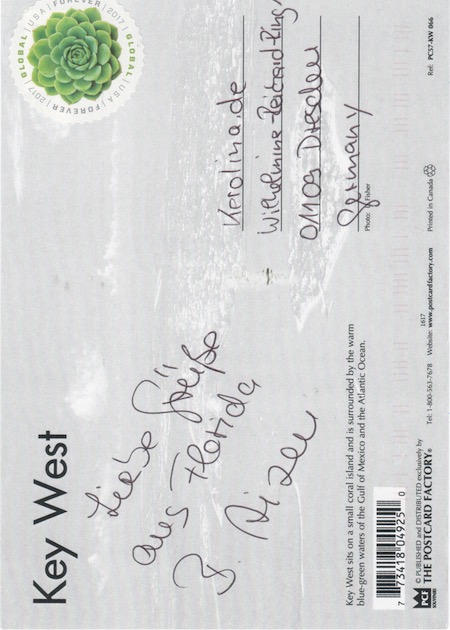 Key West
Liebe Grüße
aus Florida
Key West sits on a small coral island and is surrounded by the warm
blue-green waters of the Gulf of Mexico and the Atlantic Ocean.
7 73418 04925 0
PCF
SOUVENIRS
© PUBLISHED and DISTRIBUTED exclusively by
THE POSTCARD FACTORY®
Tel: 1-800-563-7678 Website: www.postcardfactory.com
1617
Printed in Canada
Ref: PC57-KW 066
GLOBAL | USA | FOREVER | 2017 | GLOBAL | USA | FOREVER | 2017
Karolina.de
Wilhelmine-Reichard-Ring
01109 Dresden
Germany
Photo: Fisher